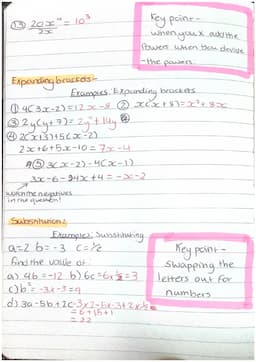 (13) 20x¹¹ = 10³
2x
Key point -
when you x add the
powers when you divide
- the powers.
Expanding brackets:-
Examples: Expanding brackets
① 4(3x-2)=12x-8 ② x(x+8)=x²+8x
③ 2y(y+7)=2y²+14y
④ 2(x+3)+5(x-2)
2x+6+5x-10=7x-4
⑤ 3(x-2)-4(x-1)
3x-6-4x+4=-x-2
watch the negatives
in the question!
Substitution:
Examples: Substituting
a=2 b=-3 c=½
find the value of
a) 4b=-12 b) 6c=6x½=3
c) b²=-3x-3=9
d) 3a-5b+2c=3x2-5x-3+2x½
=6+15+1
=22
Key point -
Swapping the
letters out for
numbers